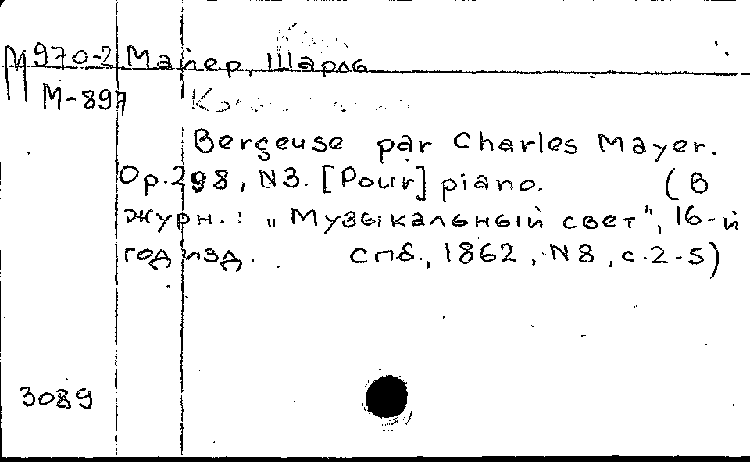 М 970-2 Майер, Шарль
М-897
Bergeuse par Charles Mayer.
Op.298, N3. [Pour] piano. (В
журн.: „Музыкальный свет", 16-й
год изд. Спб., 1862, N8, с.2-5)
3089